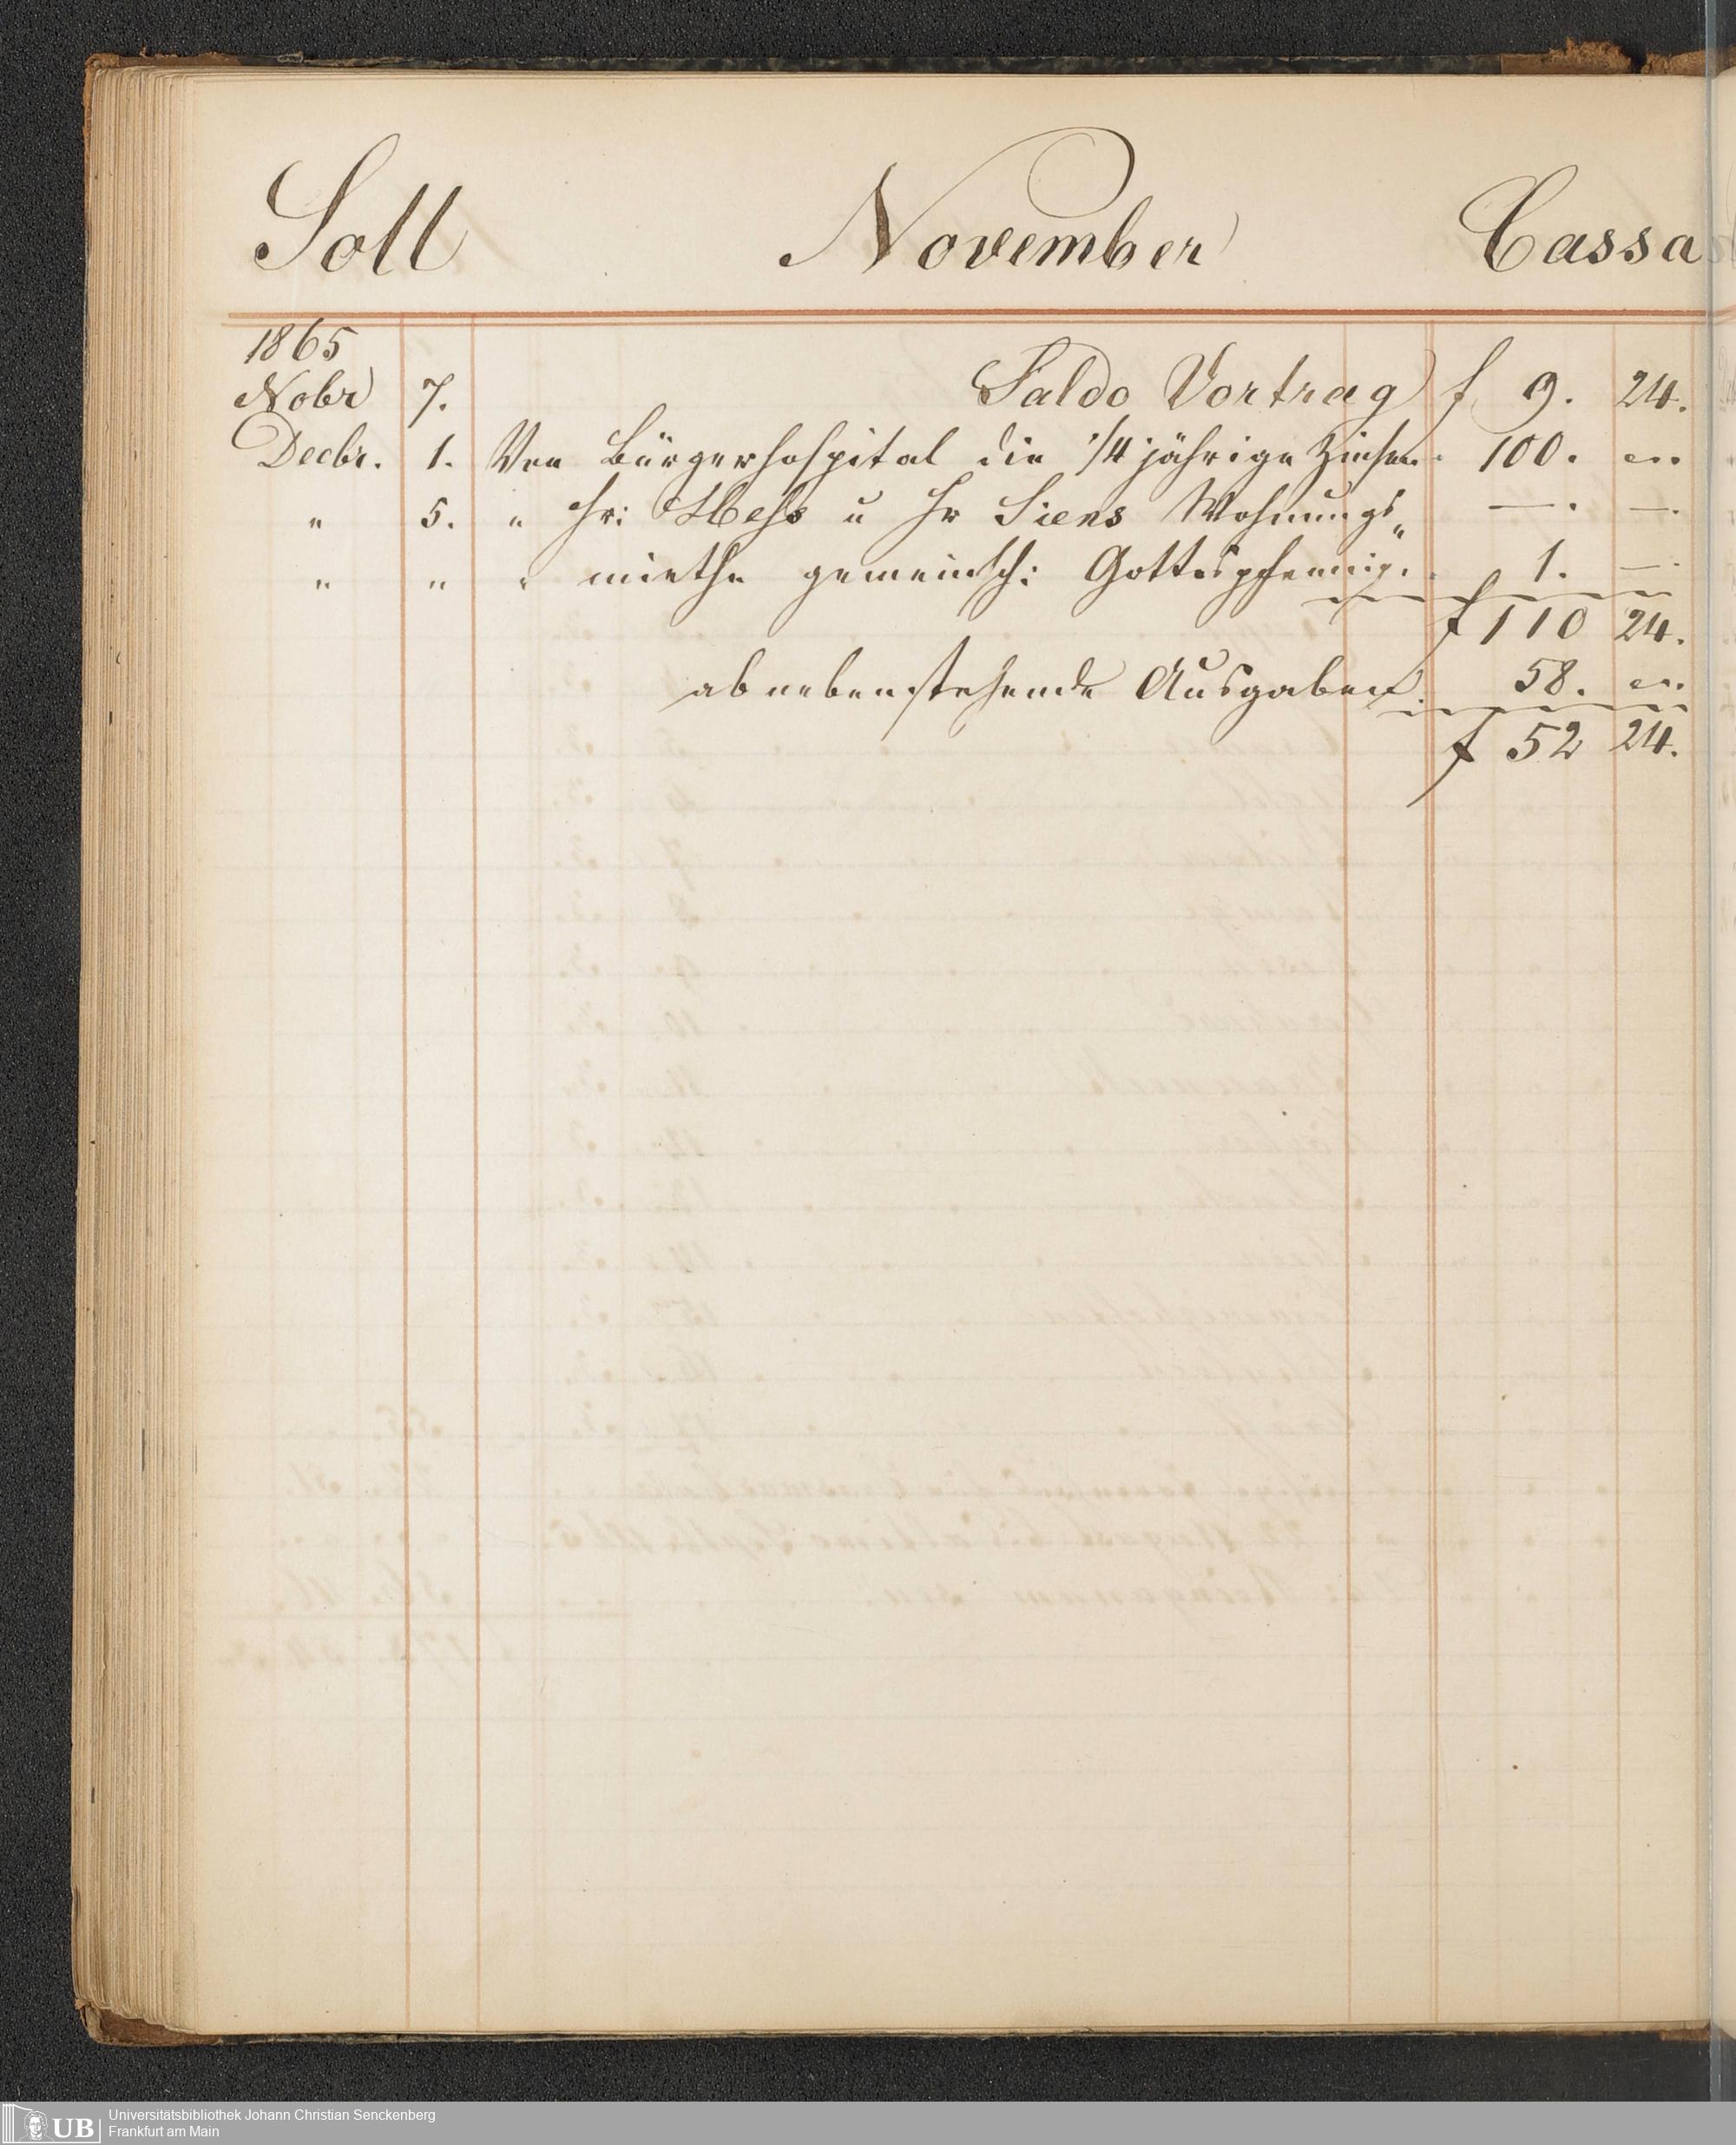 Soll November Cassa
1865
Nobr 7. Saldo Vortrag f 9. 24.
Decbr. 1. Von Bürgerhospital die 1/4 jährige Zinsen. 100. "
" 5. " Hr: Hess u Hr Siens Wohnungs„ —. —.
" " " miethe gemeinsch: Gottespfennig. 1. —.
f 110 24.
ab nebenstehende Ausgaben. 58. "
f 52 24.
UB Universitätsbibliothek Johann Christian Senckenberg
Frankfurt am Main